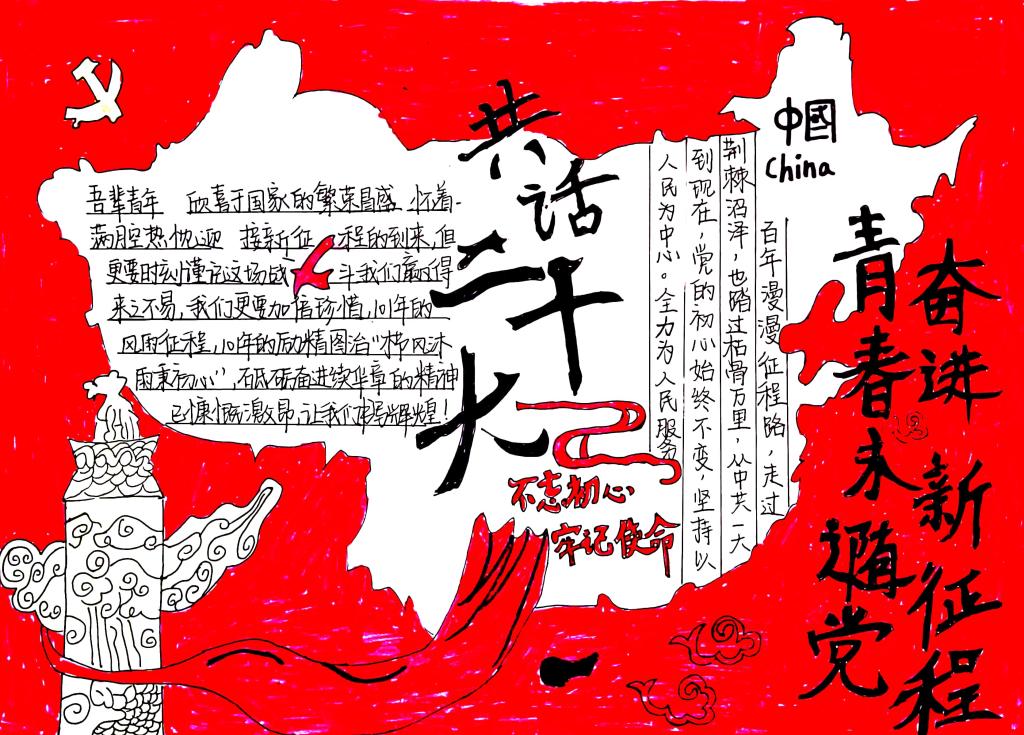 共话二十大
中國
China
吾辈青年 欣喜于国家的繁荣昌盛 怀着
满腔热忱迎 接新征程的到来,但
更要时刻谨记这场战斗我们赢得
来之不易,我们更要加倍珍惜,10年的
风雨征程,10年的励精图治"栉风沐
雨秉初心",砥砺奋进续华章的精神
已慷慨激昂,让我们再创辉煌!
百年漫漫征程路,走过
荆棘沼泽,也踏过枯骨万里,从中共一大
到现在,党的初心始终不变,坚持以
人民为中心。全力为人民服务
不忘初心
牢记使命
奋进新征程
青春永随党